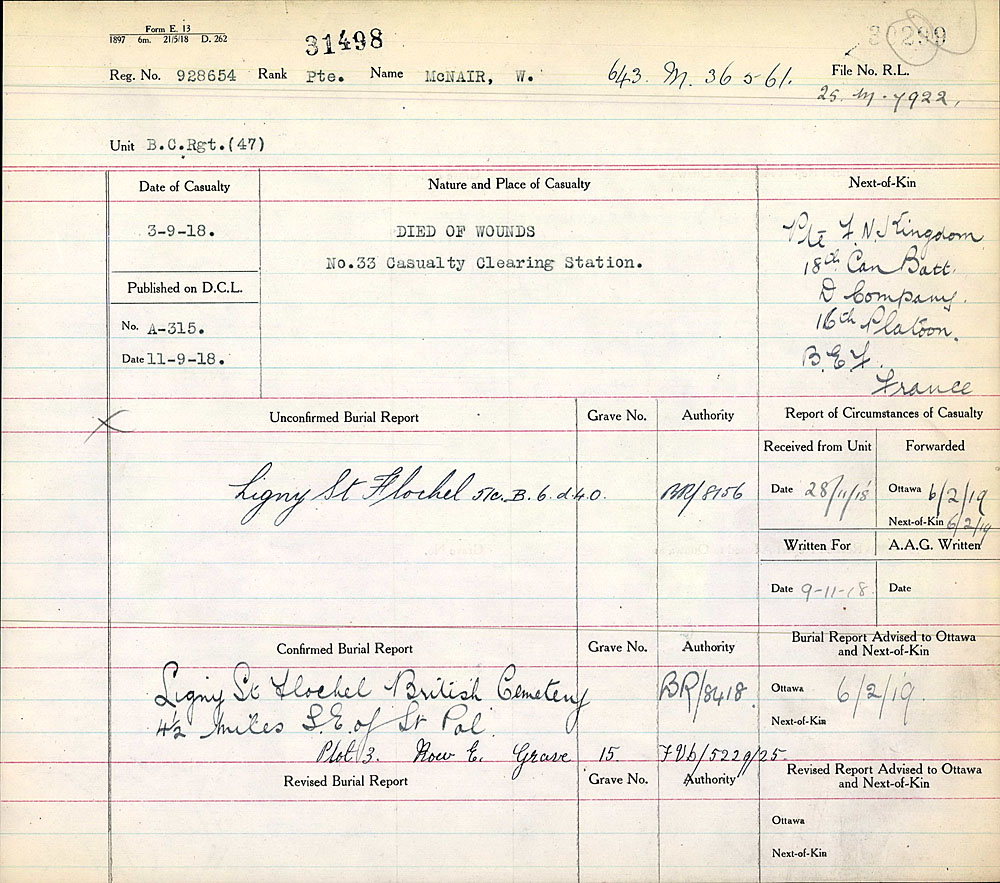 Form E. 13
1897 6m. 21/5/18 D. 262
31498
Reg. No. 928654 Rank Pte. Name McNAIR, W.
643. M. 36561.
File No. R.L.
25. M. 7922.
Unit B.C.Rgt.(47)
Date of Casualty
Nature and Place of Casualty
Next-of-Kin
3-9-18.
DIED OF WOUNDS
No.33 Casualty Clearing Station.
Pte F. N. Kingdom
18th Can Batt.
D Company.
16th Platoon.
B.E.F.
France
Published on D.C.L.
No. A-315.
Date 11-9-18.
Unconfirmed Burial Report
Grave No.
Authority
Report of Circumstances of Casualty
Received from Unit
Forwarded
Ligny St Flochel 51c. B. 6. d. 4.0.
BR/8156
Date 28/11/18
Ottawa 6/2/19
Next-of-Kin 6/2/19
Written For
A.A.G. Written
Date 9-11-18
Date
Confirmed Burial Report
Grave No.
Authority
Burial Report Advised to Ottawa
and Next-of-Kin
Ligny St Flochel British Cemetery
BR/8418.
Ottawa 6/2/19
4½ miles S.E. of St Pol.
Next-of-Kin
Plot 3. Row E. Grave 15. FVb/5229/25.
Revised Burial Report
Grave No.
Authority
Revised Report Advised to Ottawa
and Next-of-Kin
Ottawa
Next-of-Kin